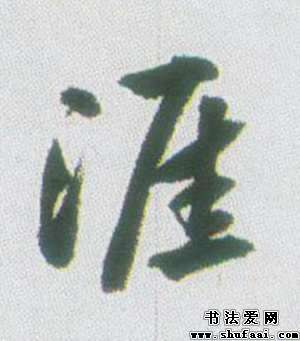 涯
书法爱网
www.shufaai.com